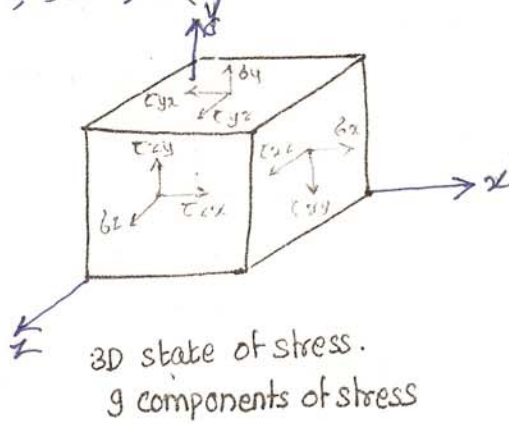 y
σy
τyx
τyz
τzy
τxz
σx
σz
τzx
τxy
x
z
3D state of stress.
9 components of stress